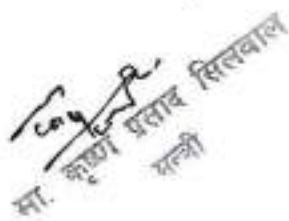 मा. कृष्ण प्रसाद सिलवाल
मन्त्री